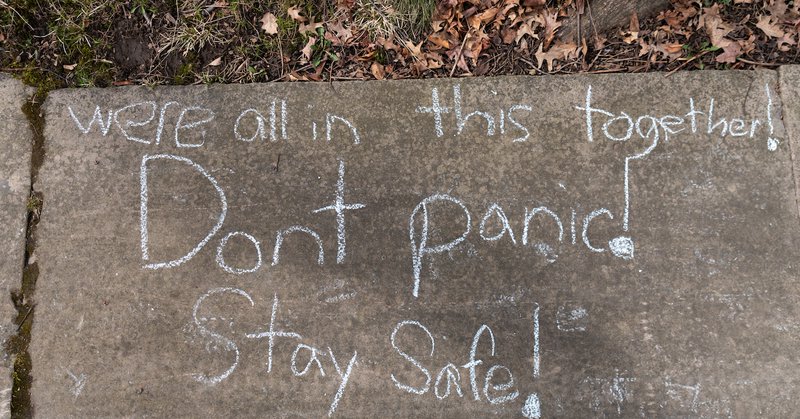 were all in this together!
Dont panic!
Stay Safe!